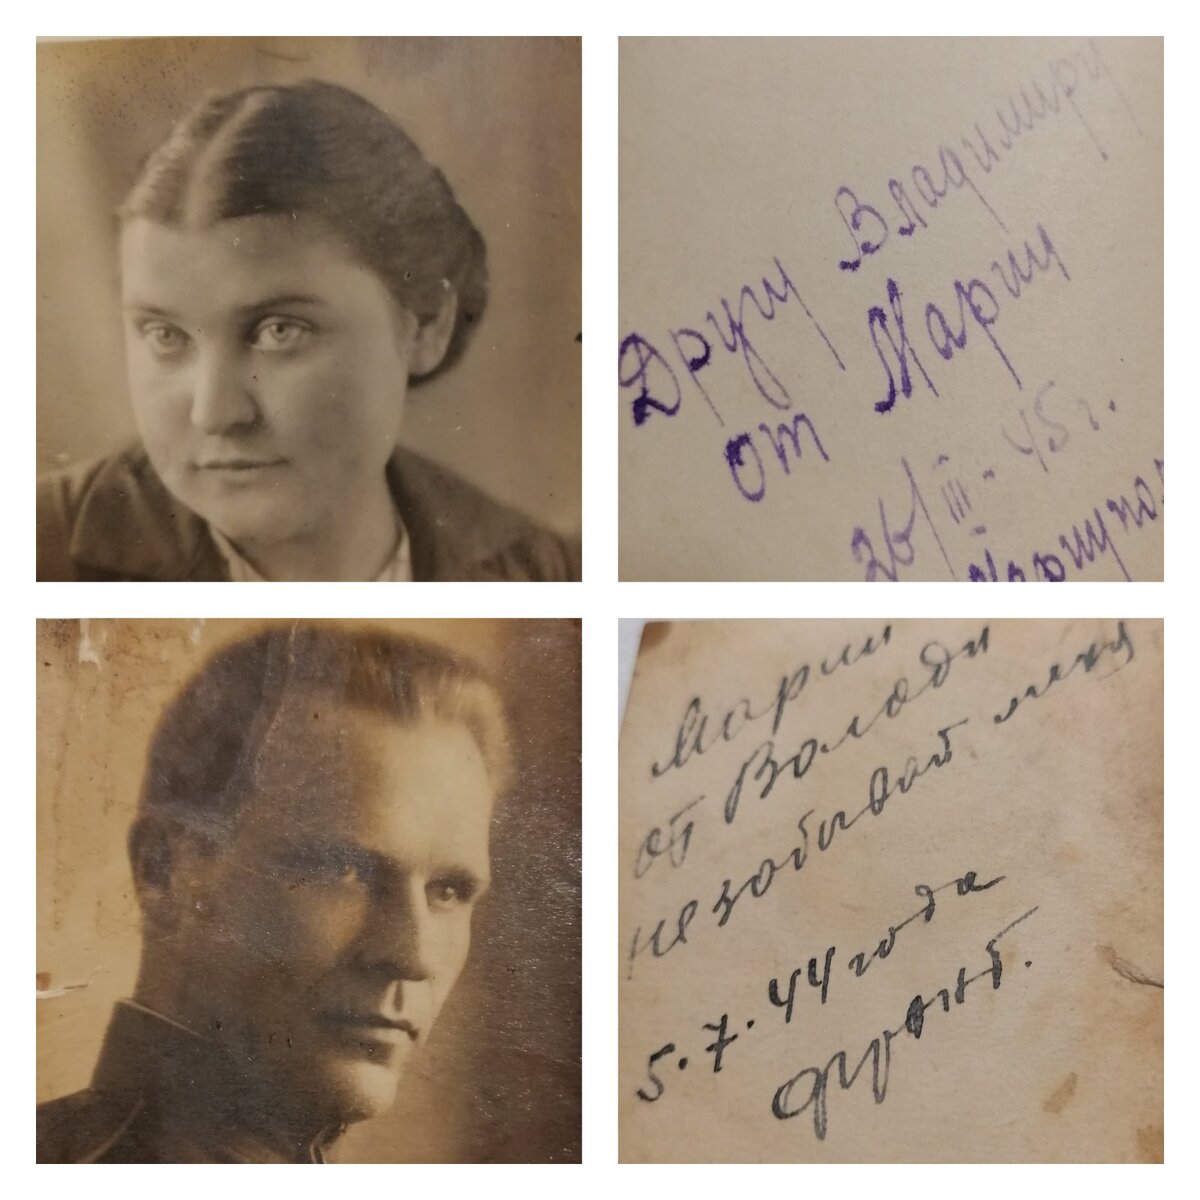 Другу Владимиру
от Марии
26/III-45г.
Мариупол
Марии
от Володи
не забывай меня
5.7.44 года
фронт.